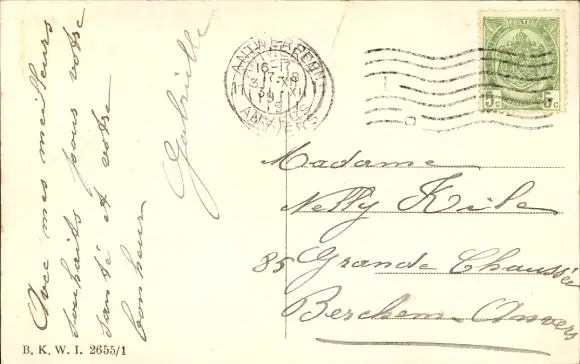 Avec mes meilleurs
souhaits pour votre
santé et votre
bonheur
Gabrielle
B. K. W. I. 2655/1
ANTWERPEN
16-17
ANVERS
POSTES
5c 5c
Madame
Nelly Kile
85 Grande Chaussée
Berchem-Anvers